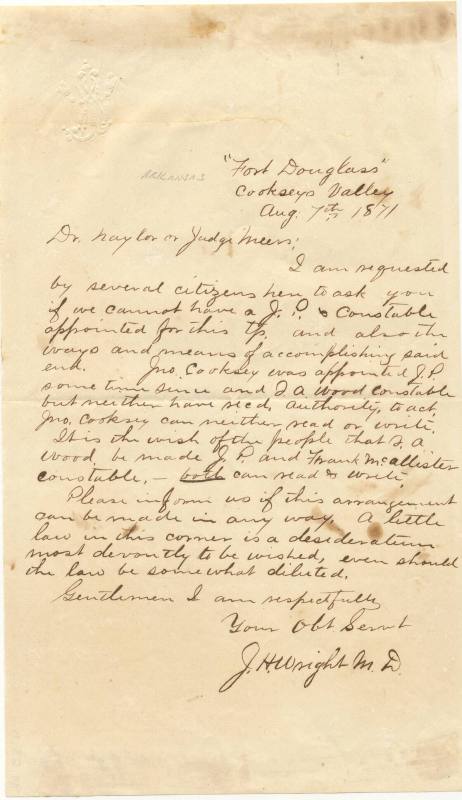 ARKANSAS
"Fort Douglass"
Cookseys Valley
Aug. 7th, 1871
Dr. Naylor or Judge Meers;
I am requested
by several citizens here to ask you
if we cannot have a J. P. & Constable
appointed for this Tp, and also the
ways and means of accomplishing said
end. Jno, Cooksey was appointed J. P.
some time since and I a wood constable
but neither have recd, authority, to act,
Jno, Cooksey can neither read or write,
It is the wish of the people that I, a
Wood, be made J. P. and Frank McAllister
constable, — both can read & write,
Please inform us if this arrangement
can be made in any way. A little
law in this corner is a desideratum
most devoutly to be wished, even should
the law be somewhat diluted.
Gentlemen I am respectfully
Your Obt Servt
J. H. Wright M. D.